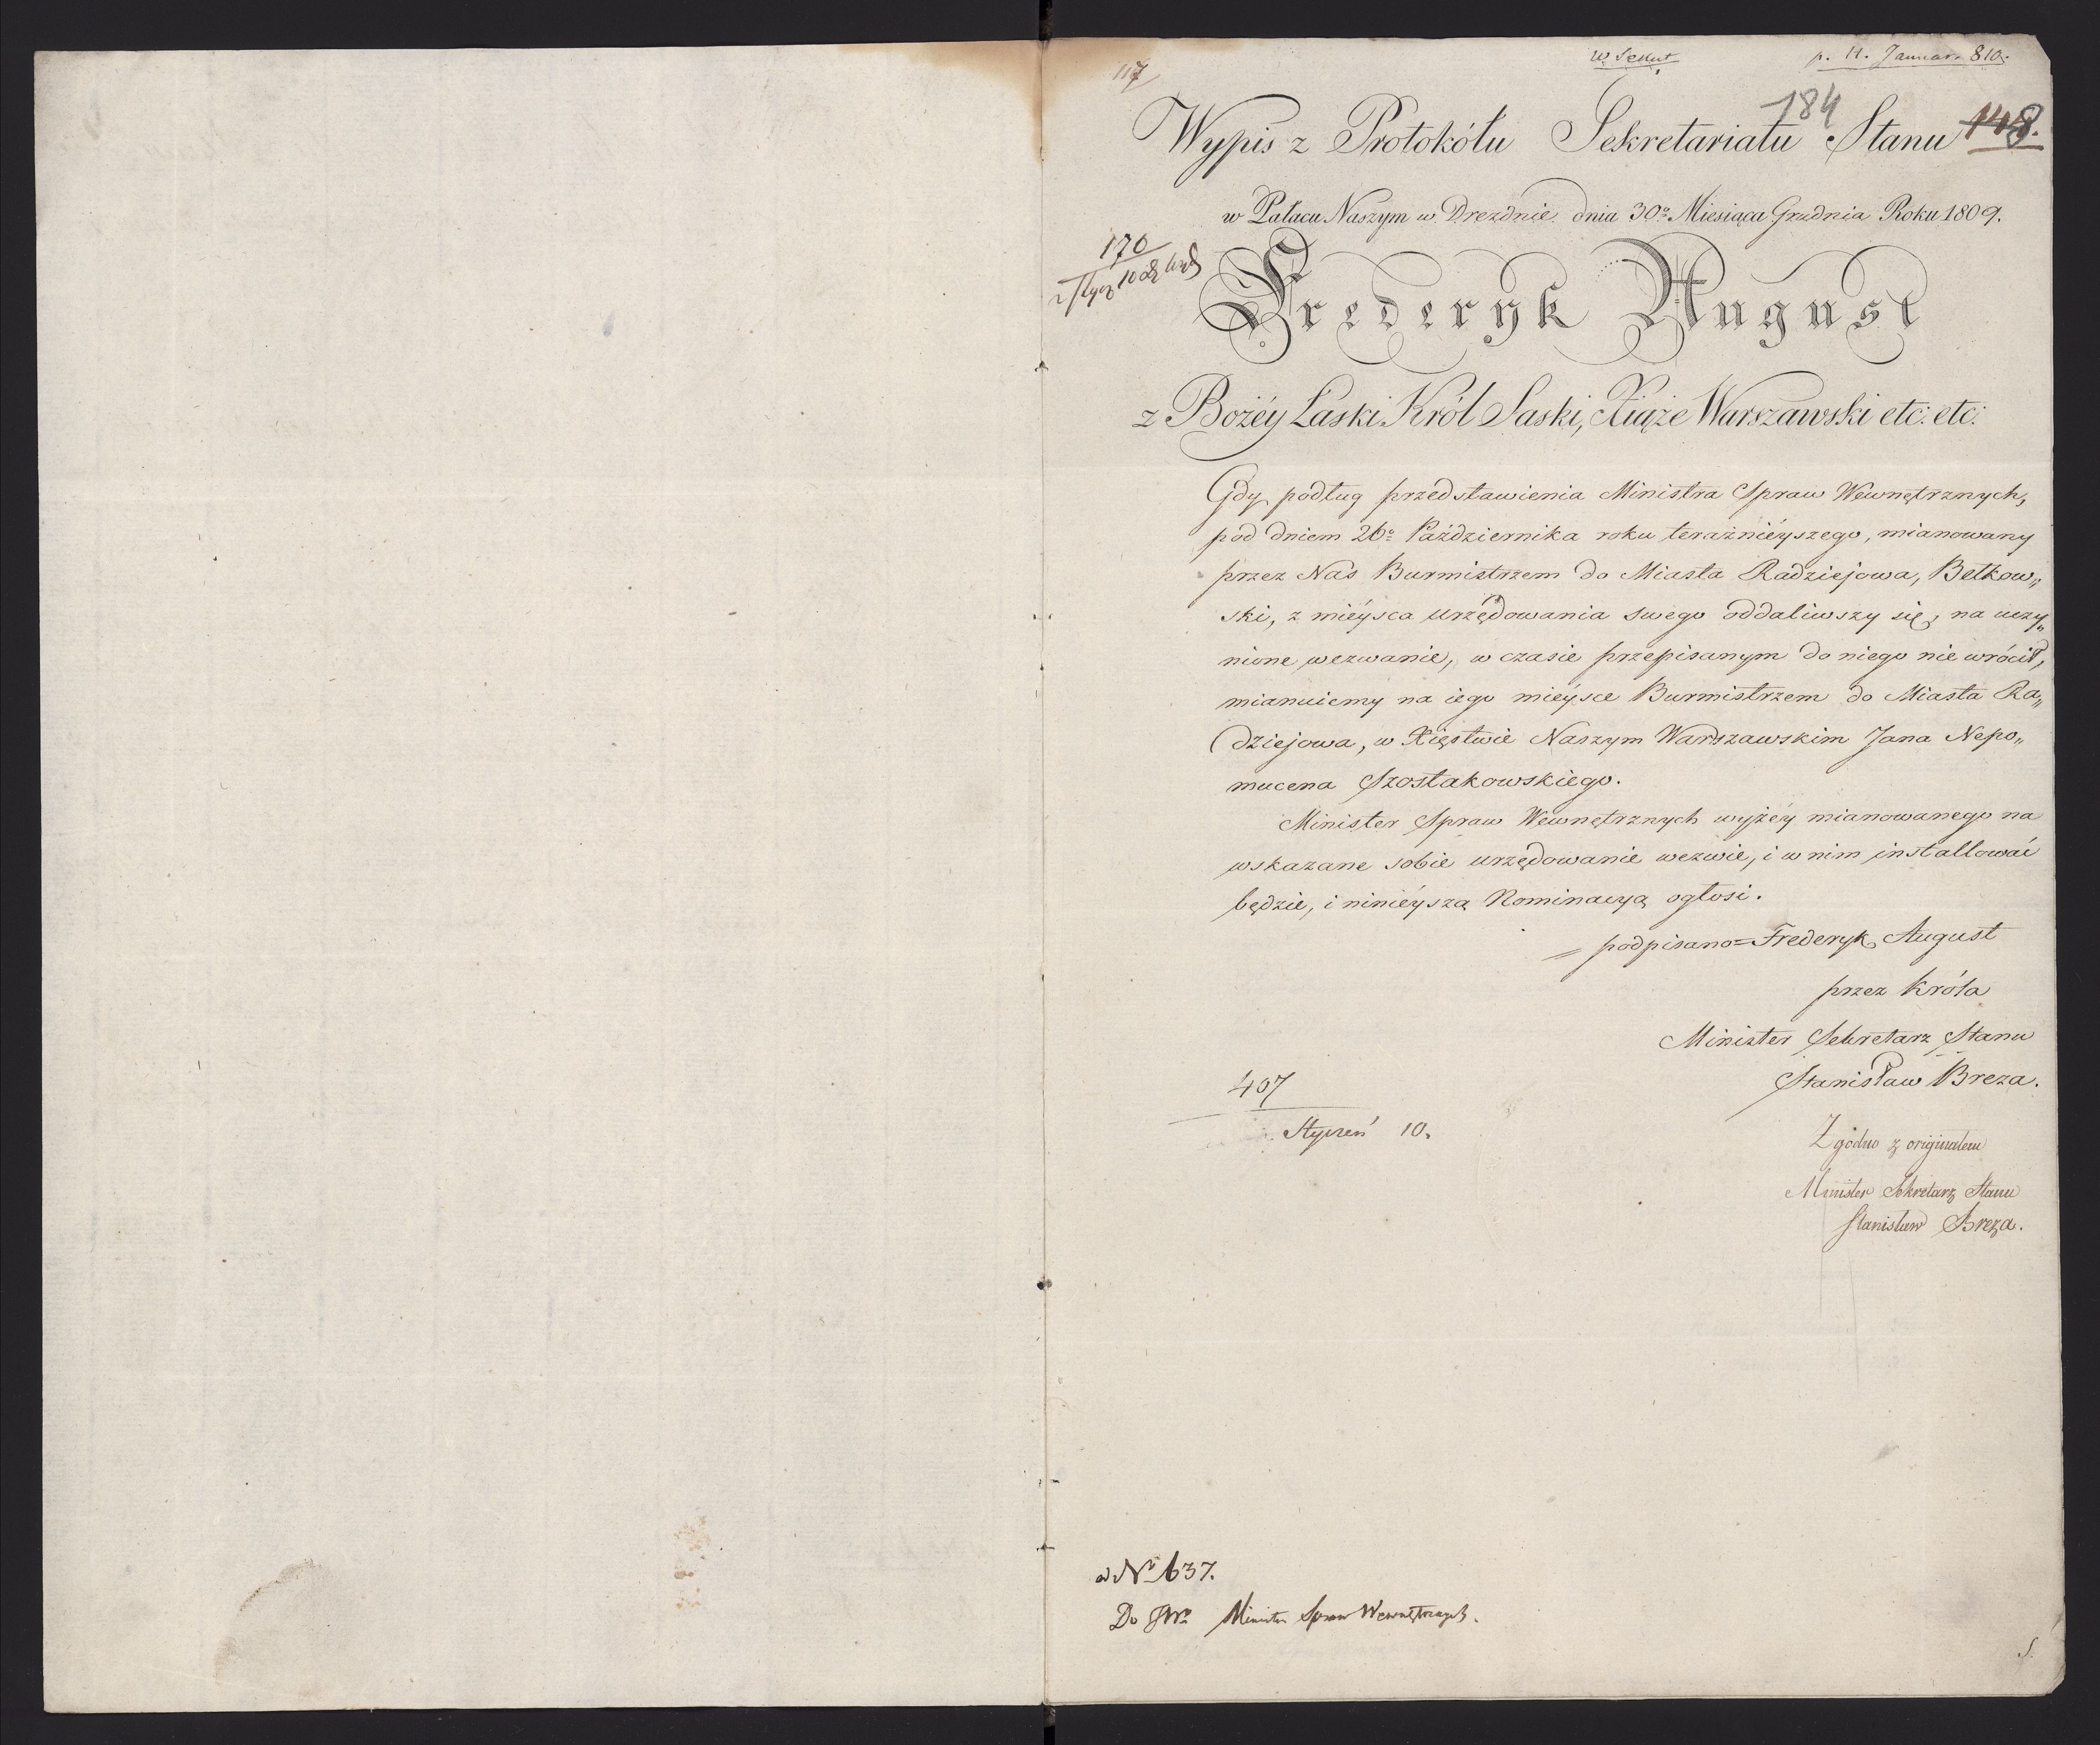 117
p. 11. Januar. 810.
184
Wypis z Protokółu Sekretariatu Stanu 148.
w Pałacu Naszym w Dreznie dnia 30º Miesiąca Grudnia Roku 1809.
170
Frederyk August
z Bożéy Łaski Król Saski, Xiąże Warszawski etc: etc:
Gdy podług przedstawienia Ministra Spraw Wewnętrznych,
pod dniem 26º Października roku teraźnieyszego, mianowany
przez Nas Burmistrzem do Miasta Radziejowa, Bełkow„
ski, z mieysca urzędowania swego oddaliwszy się, na uczy„
nione wezwanie, w czasie przepisanym do niego nie wrócił,
mianuiemy na iego mieysce Burmistrzem do Miasta Ra„
dziejowa, w Xięstwie Naszym Warszawskim Jana Nepo„
mucena Szostakowskiego.
Minister Spraw Wewnętrznych wyżéy mianowanego na
wskazane sobie urzędowanie wezwie, i w nim installować
będzie, i ninieyszą Nominacyą ogłosi.
podpisano = Frederyk August
przez Króla
Minister Sekretarz Stanu
Stanisław Breza.
407
Styczeń 10.
Zgodno z originałem
Minister Sekretarz Stanu
Stanisław Breza.
ad Nº 637.
Do JWº Ministra Spraw Wewnętrznych.
S.